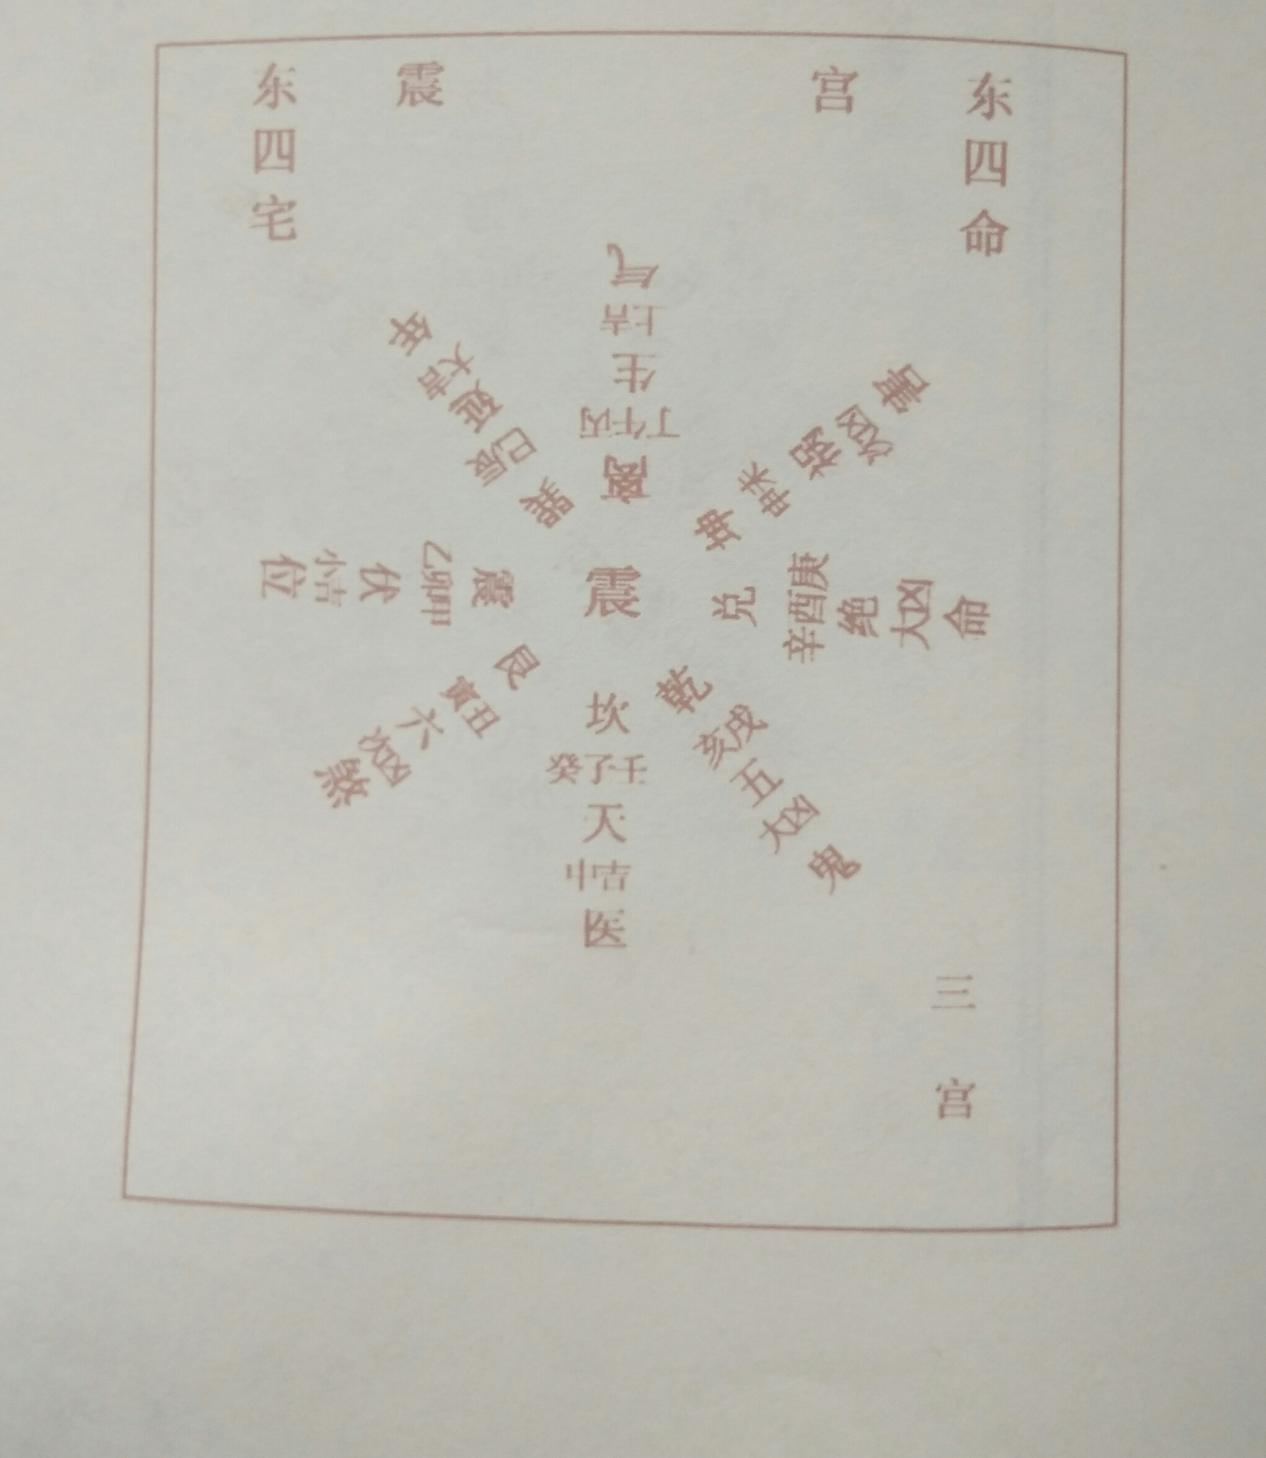 东四宅
震 宫
东四命
离
丁午丙
生
上吉
气
坤
未申
祸
次凶
害
兑
庚酉辛
绝
大凶
命
乾
戌亥
五
大凶
鬼
坎
癸子壬
天
中吉
医
艮
丑寅
六
次凶
煞
震
乙卯甲
伏
小吉
位
巽
巳辰
延
大吉
年
震
三宫